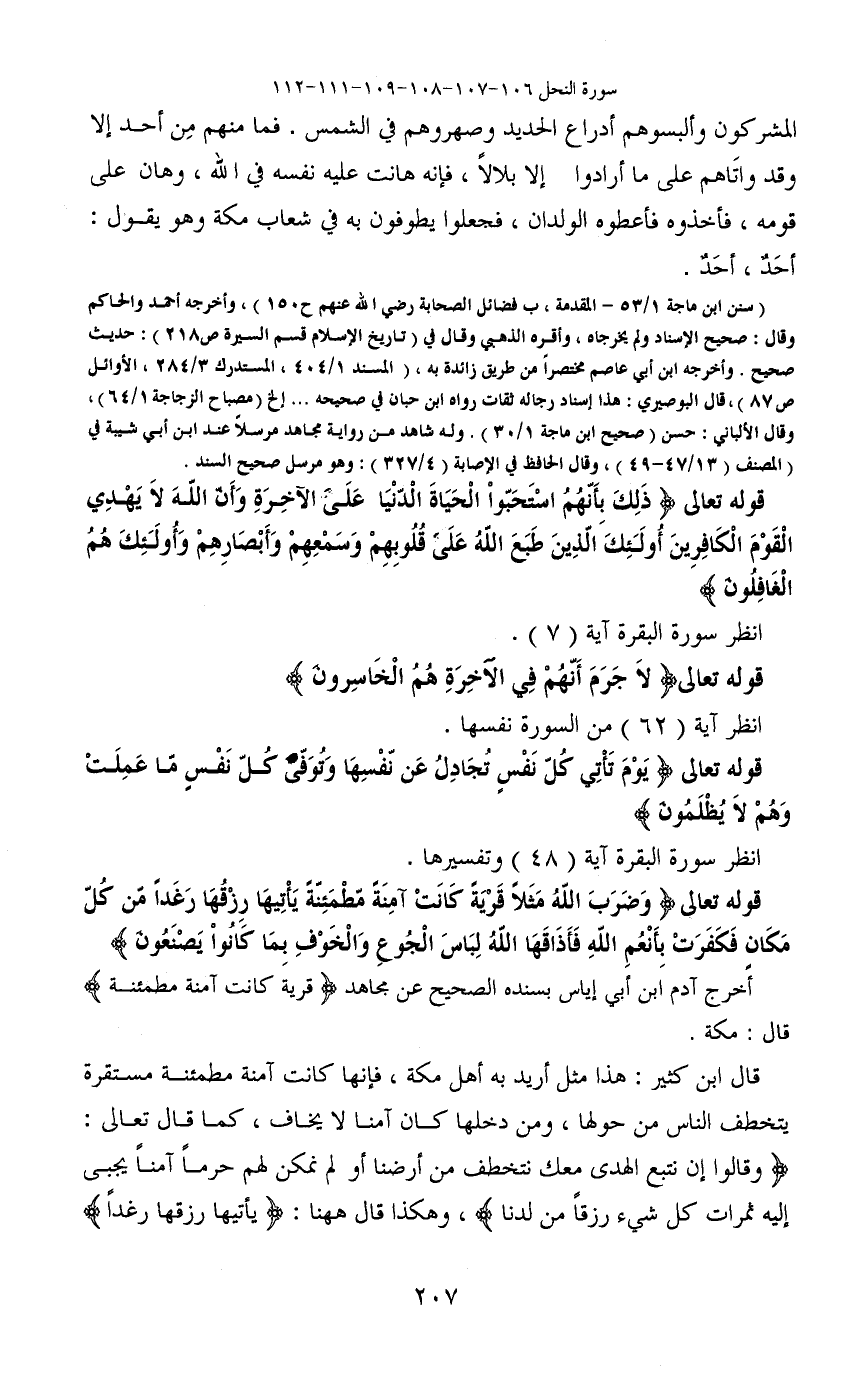 سورة النحل ١٠٦-١٠٧-١٠٨-١٠٩-١١١-١١٢
المشركون وألبسوهم أدراع الحديد وصهروهم في الشمس . فما منهم مِن أحد إلا
وقد واتَاهم على ما أرادوا إلا بلالاً ، فإنه هانت عليه نفسه في الله ، وهان على
قومه ، فأخذوه فأعطوه الولدان ، فجعلوا يطوفون به في شعاب مكة وهو يقول :
أحَدٌ ، أحَدٌ .
( سنن ابن ماجة ٥٣/١ – المقدمة ، ب فضائل الصحابة رضي الله عنهم ح١٥٠ ) ، وأخرجه أحمد والحاكم
وقال : صحيح الإسناد ولم يخرجاه ، وأقره الذهبي وقال في ( تاريخ الإسلام قسم السيرة ص٢١٨ ) : حديث
صحيح . وأخرجه ابن أبي عاصم مختصراً من طريق زائدة به ، ( المسند ٤٠٤/١ ، المستدرك ٢٨٤/٣ ، الأوائل
ص٨٧ )، قال البوصيري : هذا إسناد رجاله ثقات رواه ابن حبان في صحيحه ... إلخ (مصباح الزجاجة ٦٤/١) ،
وقال الألباني : حسن ( صحيح ابن ماجة ٣٠/١ ) . وله شاهد من رواية مجاهد مرسلاً عند ابن أبي شيبة في
( المصنف ٤٧/١٣–٤٩ ) ، وقال الحافظ في الإصابة ( ٣٢٧/٤ ) : وهو مرسل صحيح السند .
قوله تعالى ﴿ ذَلِكَ بِأَنَّهُمُ اسْتَحَبّواْ الْحَيَاةَ الْدّنْيَا عَلَىَ الآخِرَةِ وَأَنّ اللّهَ لاَ يَهْدِي
الْقَوْمَ الْكَافِرِينَ أُولَئِكَ الّذِينَ طَبَعَ اللّهُ عَلَىَ قُلُوبِهِمْ وَسَمْعِهِمْ وَأَبْصَارِهِمْ وَأُولَئِكَ هُمُ
الْغَافِلُونَ ﴾
انظر سورة البقرة آية ( ٧ ) .
قوله تعالى﴿ لاَ جَرَمَ أَنّهُمْ فِي الآخِرَةِ هُمُ الْخَاسِرونَ ﴾
انظر آية ( ٦٢ ) من السورة نفسها .
قوله تعالى ﴿ يَوْمَ تَأْتِي كُلّ نَفْسٍ تُجَادِلُ عَن نّفْسِهَا وَتُوَفّىَ كُلّ نَفْسٍ مّا عَمِلَتْ
وَهُمْ لاَ يُظْلَمُونَ ﴾
انظر سورة البقرة آية ( ٤٨ ) وتفسيرها .
قوله تعالى﴿ وَضَرَبَ اللّهُ مَثَلاً قَرْيَةً كَانَتْ آمِنَةً مّطْمَئِنّةً يَأْتِيهَا رِزْقُهَا رَغَداً مّن كُلّ
مَكَانٍ فَكَفَرَتْ بِأَنْعُمِ اللّهِ فَأَذَاقَهَا اللّهُ لِبَاسَ الْجُوعِ وَالْخَوْفِ بِمَا كَانُواْ يَصْنَعُونَ ﴾
أخرج آدم ابن أبي إياس بسنده الصحيح عن مجاهد ﴿ قرية كانت آمنة مطمئنة ﴾
قال : مكة .
قال ابن كثير : هذا مثل أريد به أهل مكة ، فإنها كانت آمنة مطمئنة مستقرة
يتخطف الناس من حولها ، ومن دخلها كان آمنا لا يخاف ، كما قال تعالى :
﴿ وقالوا إن نتبع الهدى معك نتخطف من أرضنا أو لم نمكن لهم حرماً آمناً يجبى
إليه ثمرات كل شيء رزقاً من لدنا ﴾ ، وهكذا قال ههنا : ﴿ يأتيها رزقها رغداً ﴾
٢٠٧